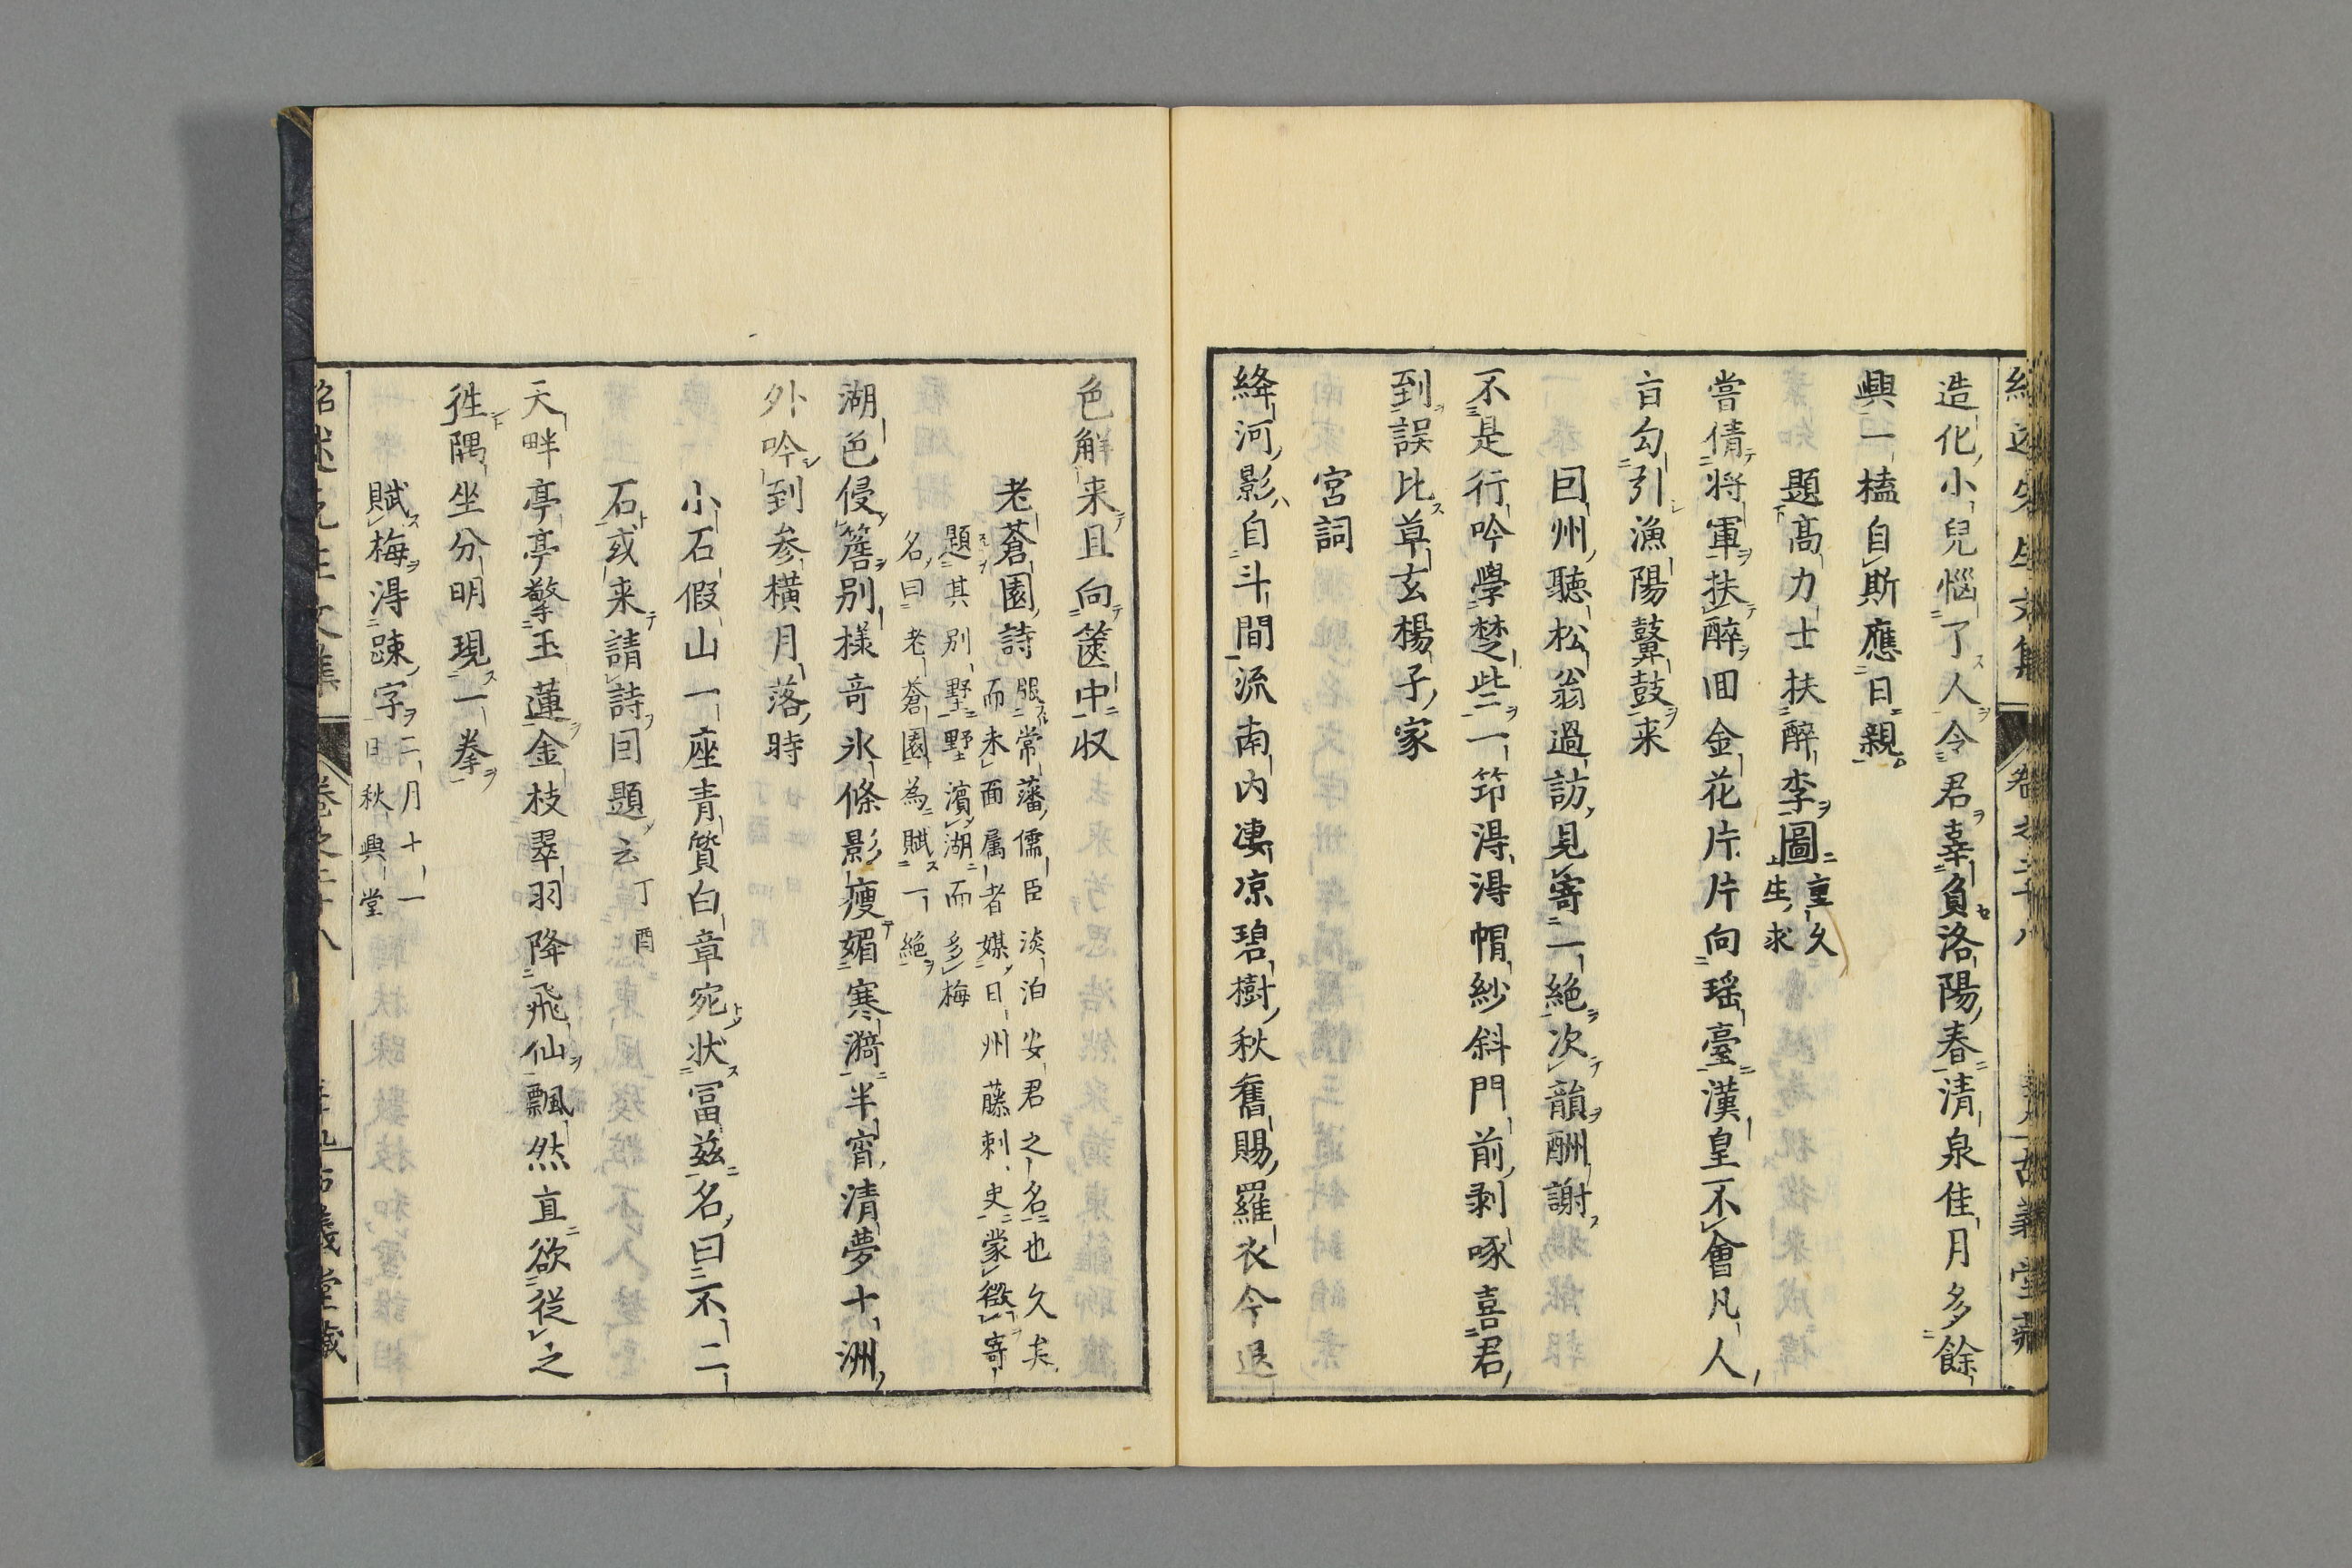 造化小兒惱了人令君辜負洛陽春清泉佳月多餘
興一榼自斯應日親
題高力士扶醉李圖 重久
生求
嘗倩將軍扶醉回金花片片向瑶臺漢皇不會凡人
盲勾引漁陽鼙鼓来
囙州聽松翁過訪見寄一絶次韻酬謝
不是行吟學楚些一笻淂淂帽紗斜門前剥啄喜君
到誤比草玄楊子家
宮詞
絳河影自斗間流南内凄凉碧樹秋舊賜羅衣今退
色解来且向篋中収
老蒼園詩 服常藩儒臣淡泊安君之名也久矣
而未面属者媒日州藤刺史蒙徴寄
題其別墅墅濱湖而多梅
名曰老蒼園為賦一絶
湖色侵簷别樣竒氷條影痩媚寒漪半宵清夢十洲
外吟到参横月落時
小石假山一座青質白章宛状冨兹名曰不二
石或来請詩囙題云 丁酉
天畔亭亭擎玉蓮金枝翠羽降飛仙飄然直欲従之
徃隅坐分明現一拳
賦梅淂踈字 二月十一
日秋興堂
紹述先生文集 卷之二十八 古義堂藏